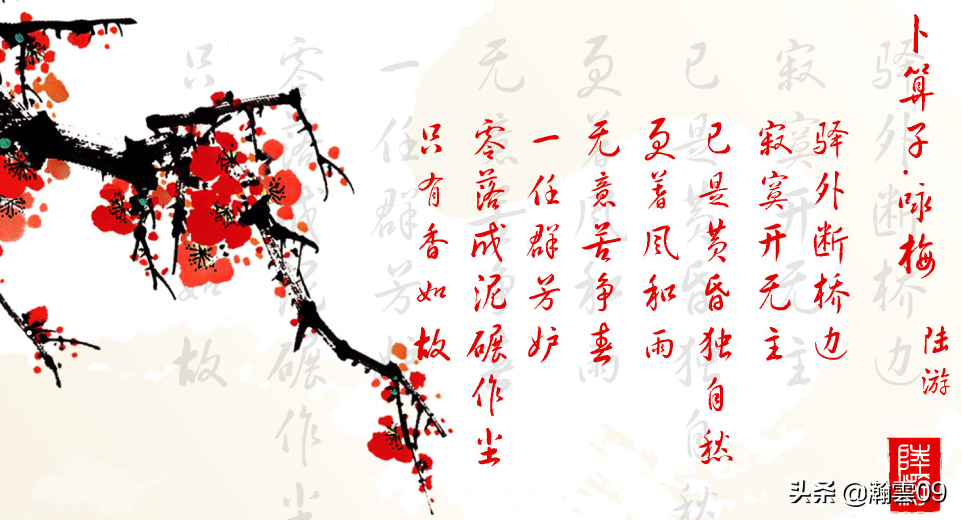 卜算子·咏梅
陆游
驿外断桥边
寂寞开无主
已是黄昏独自愁
更着风和雨
无意苦争春
一任群芳妒
零落成泥碾作尘
只有香如故
头条 @瀚雲09